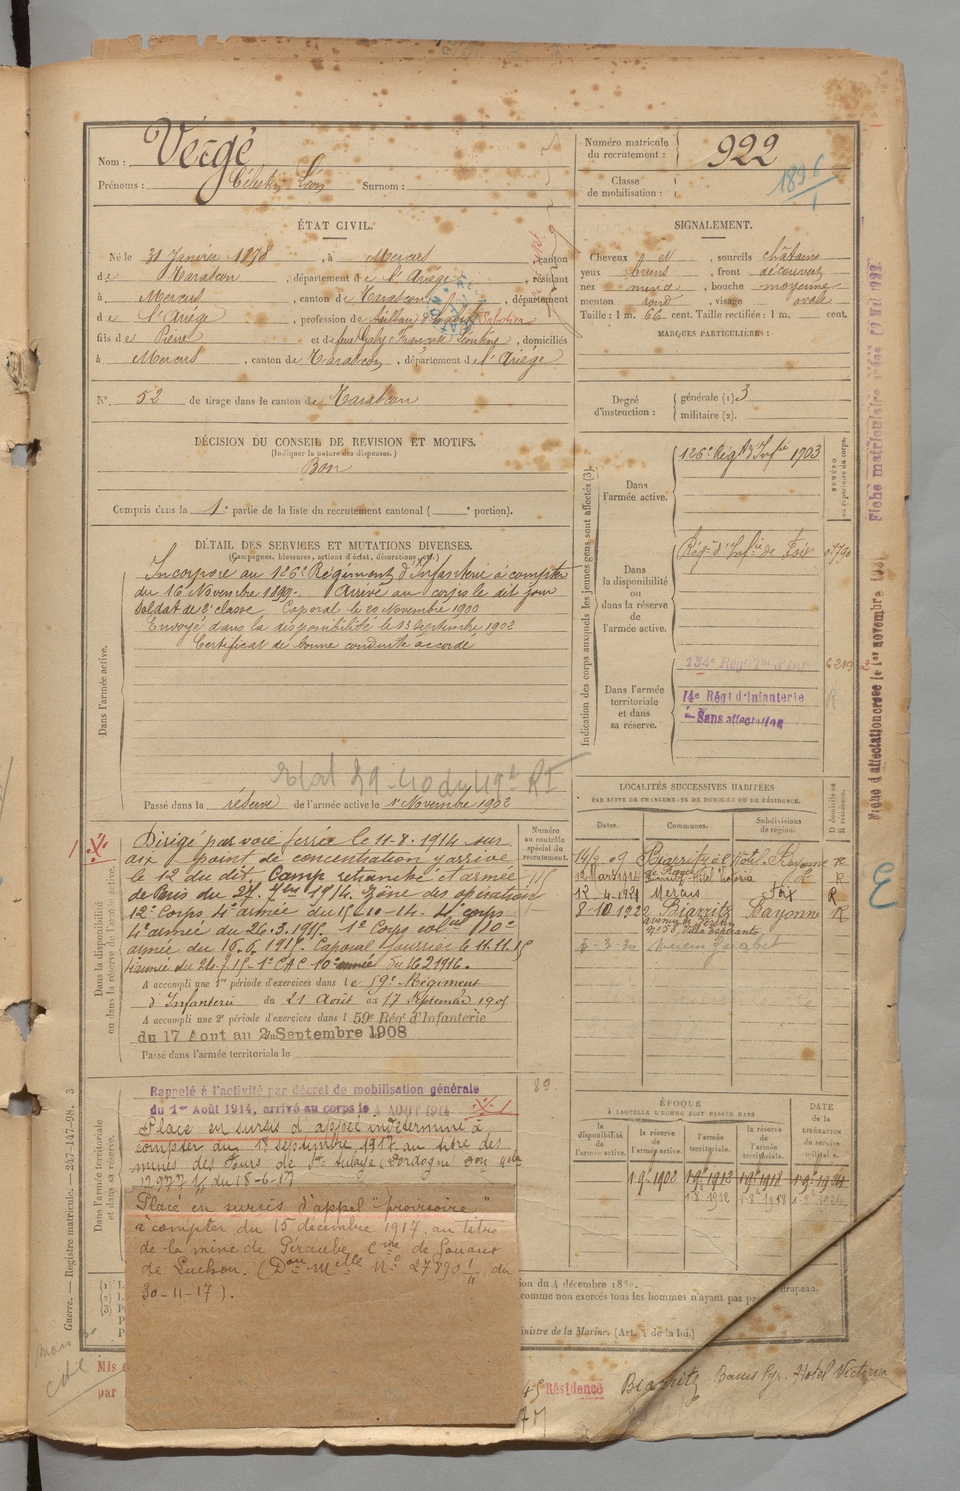 Nom : Vergé
Prénoms : Célestin Léon Surnom :
Numéro matricule du recrutement : 922
Classe de mobilisation : 1896
ÉTAT CIVIL.
Né le 31 Janvier 1878, à Mercus, canton
de Tarascon, département de l'Ariège, résidant
à Mercus, canton de Tarascon, département
de l'Ariège, profession de Sabotier
fils de Pierre et de feue Françoise, domiciliés
à Mercus, canton de Tarascon, département de l'Ariège
N° 52 de tirage dans le canton de Tarascon
SIGNALEMENT.
Cheveux d, sourcils châtains
yeux bruns, front découvert
nez mince, bouche moyenne
menton rond, visage ovale
Taille : 1 m. 66 cent. Taille rectifiée : 1 m. cent.
MARQUES PARTICULIÈRES :
Degré d'instruction : générale (1) 3
militaire (2).
DÉCISION DU CONSEIL DE REVISION ET MOTIFS.
(Indiquer la nature des dispenses.)
Bon
Compris dans la 1e partie de la liste du recrutement cantonal ( e portion).
DÉTAIL DES SERVICES ET MUTATIONS DIVERSES.
(Campagnes, blessures, actions d'éclat, décorations, etc.)
Dans l'armée active.
Incorporé au 126e Régiment d'Infanterie à compter
du 16 Novembre 1899. Arrivé au corps le dit jour
soldat de 2e classe Caporal le 20 Novembre 1900
Envoyé dans la disponibilité le 13 Septembre 1902
Certificat de bonne conduite accordé
Passé dans la réserve de l'armée active le 1er Novembre 1902
Indication des corps auxquels les jeunes gens sont affectés (3).
NUMÉRO au répertoire du corps.
Dans l'armée active.
126e Régt d'Infie 1703
Dans la disponibilité ou dans la réserve de l'armée active.
Régt d'Infie de Foix
Dans l'armée territoriale et dans sa réserve.
134e Régt Ter d'Inf
14e Régt d'Infanterie
Sans affectation
Dans la disponibilité ou dans la réserve de l'armée active.
Numéro au contrôle spécial du recrutement.
Dirigé par voie ferrée le 11-8-1914 sur
point de concentration y arrivé
le 12 du dit. Camp retranché et armée
de Paris du 1914. Zône des opérations
12e Corps, 4e armée du 15-10-14. 4e corps
4e armée du 26.3.1915. 1e Corps colal 10e
armée du 16.6.1915. Caporal fourrier le 11.11.15
1e CAC 10e armée du 16 2 1916.
A accompli une 1re période d'exercices dans le 59e Régiment
d'Infanterie du 21 Août au 17 Septembre 1905
A accompli une 2e période d'exercices dans l 59e Régt d'Infanterie
du 17 Aout au 2 Septembre 1908
Passé dans l'armée territoriale le
LOCALITÉS SUCCESSIVES HABITÉES
PAR SUITE DE CHANGEMENTS DE DOMICILE OU DE RÉSIDENCE.
Dates. Communes. Subdivisions de région. D domicile ou R résidence.
14/2 09 Biarritz Hôtel Bayonne R
12 Mars 1912 Biarritz Hôtel Victoria R
12 4 1921 Mercus Foix R
8-10 1922 Biarritz Bayonne R
avenue de
n° 58, Villa Esperanto
Mercus Garabet
Dans l'armée territoriale et dans sa réserve.
Rappelé à l'activité par décret de mobilisation générale
du 1er Août 1914, arrivé au corps le 4 AOUT 1914
89.
Placé en sursis d'appel indéterminé à
compter du 1er septembre 1917 au titre des
mines des Fours de Dordogne
12977 du 18-6-17
Placé en sursis d'appel "provisoire"
à compter du 15 décembre 1917, au titre
de la mine de Péraube, Cne de Gouaux
de Luchon. (Don Mlle N° 27890 1/11 du
30-11-17).
ÉPOQUE
À LAQUELLE L'HOMME DOIT PASSER DANS
la disponibilité de l'armée active. la réserve de l'armée active. l'armée territoriale. la réserve de l'armée territoriale.
DATE de la LIBÉRATION du service militaire.
ion du 4 décembre 18
comme non exercés tous les hommes n'ayant pas drapeau.
inistre de la Marine. (Art. de la loi.)
Résidence Biarritz Basses Py. Hotel Victoria
Guerre. — Registre matricule. — 247-147-98. 3
Fiche matriculaire
Fiche d'affectation créée le 1er novembre 1921